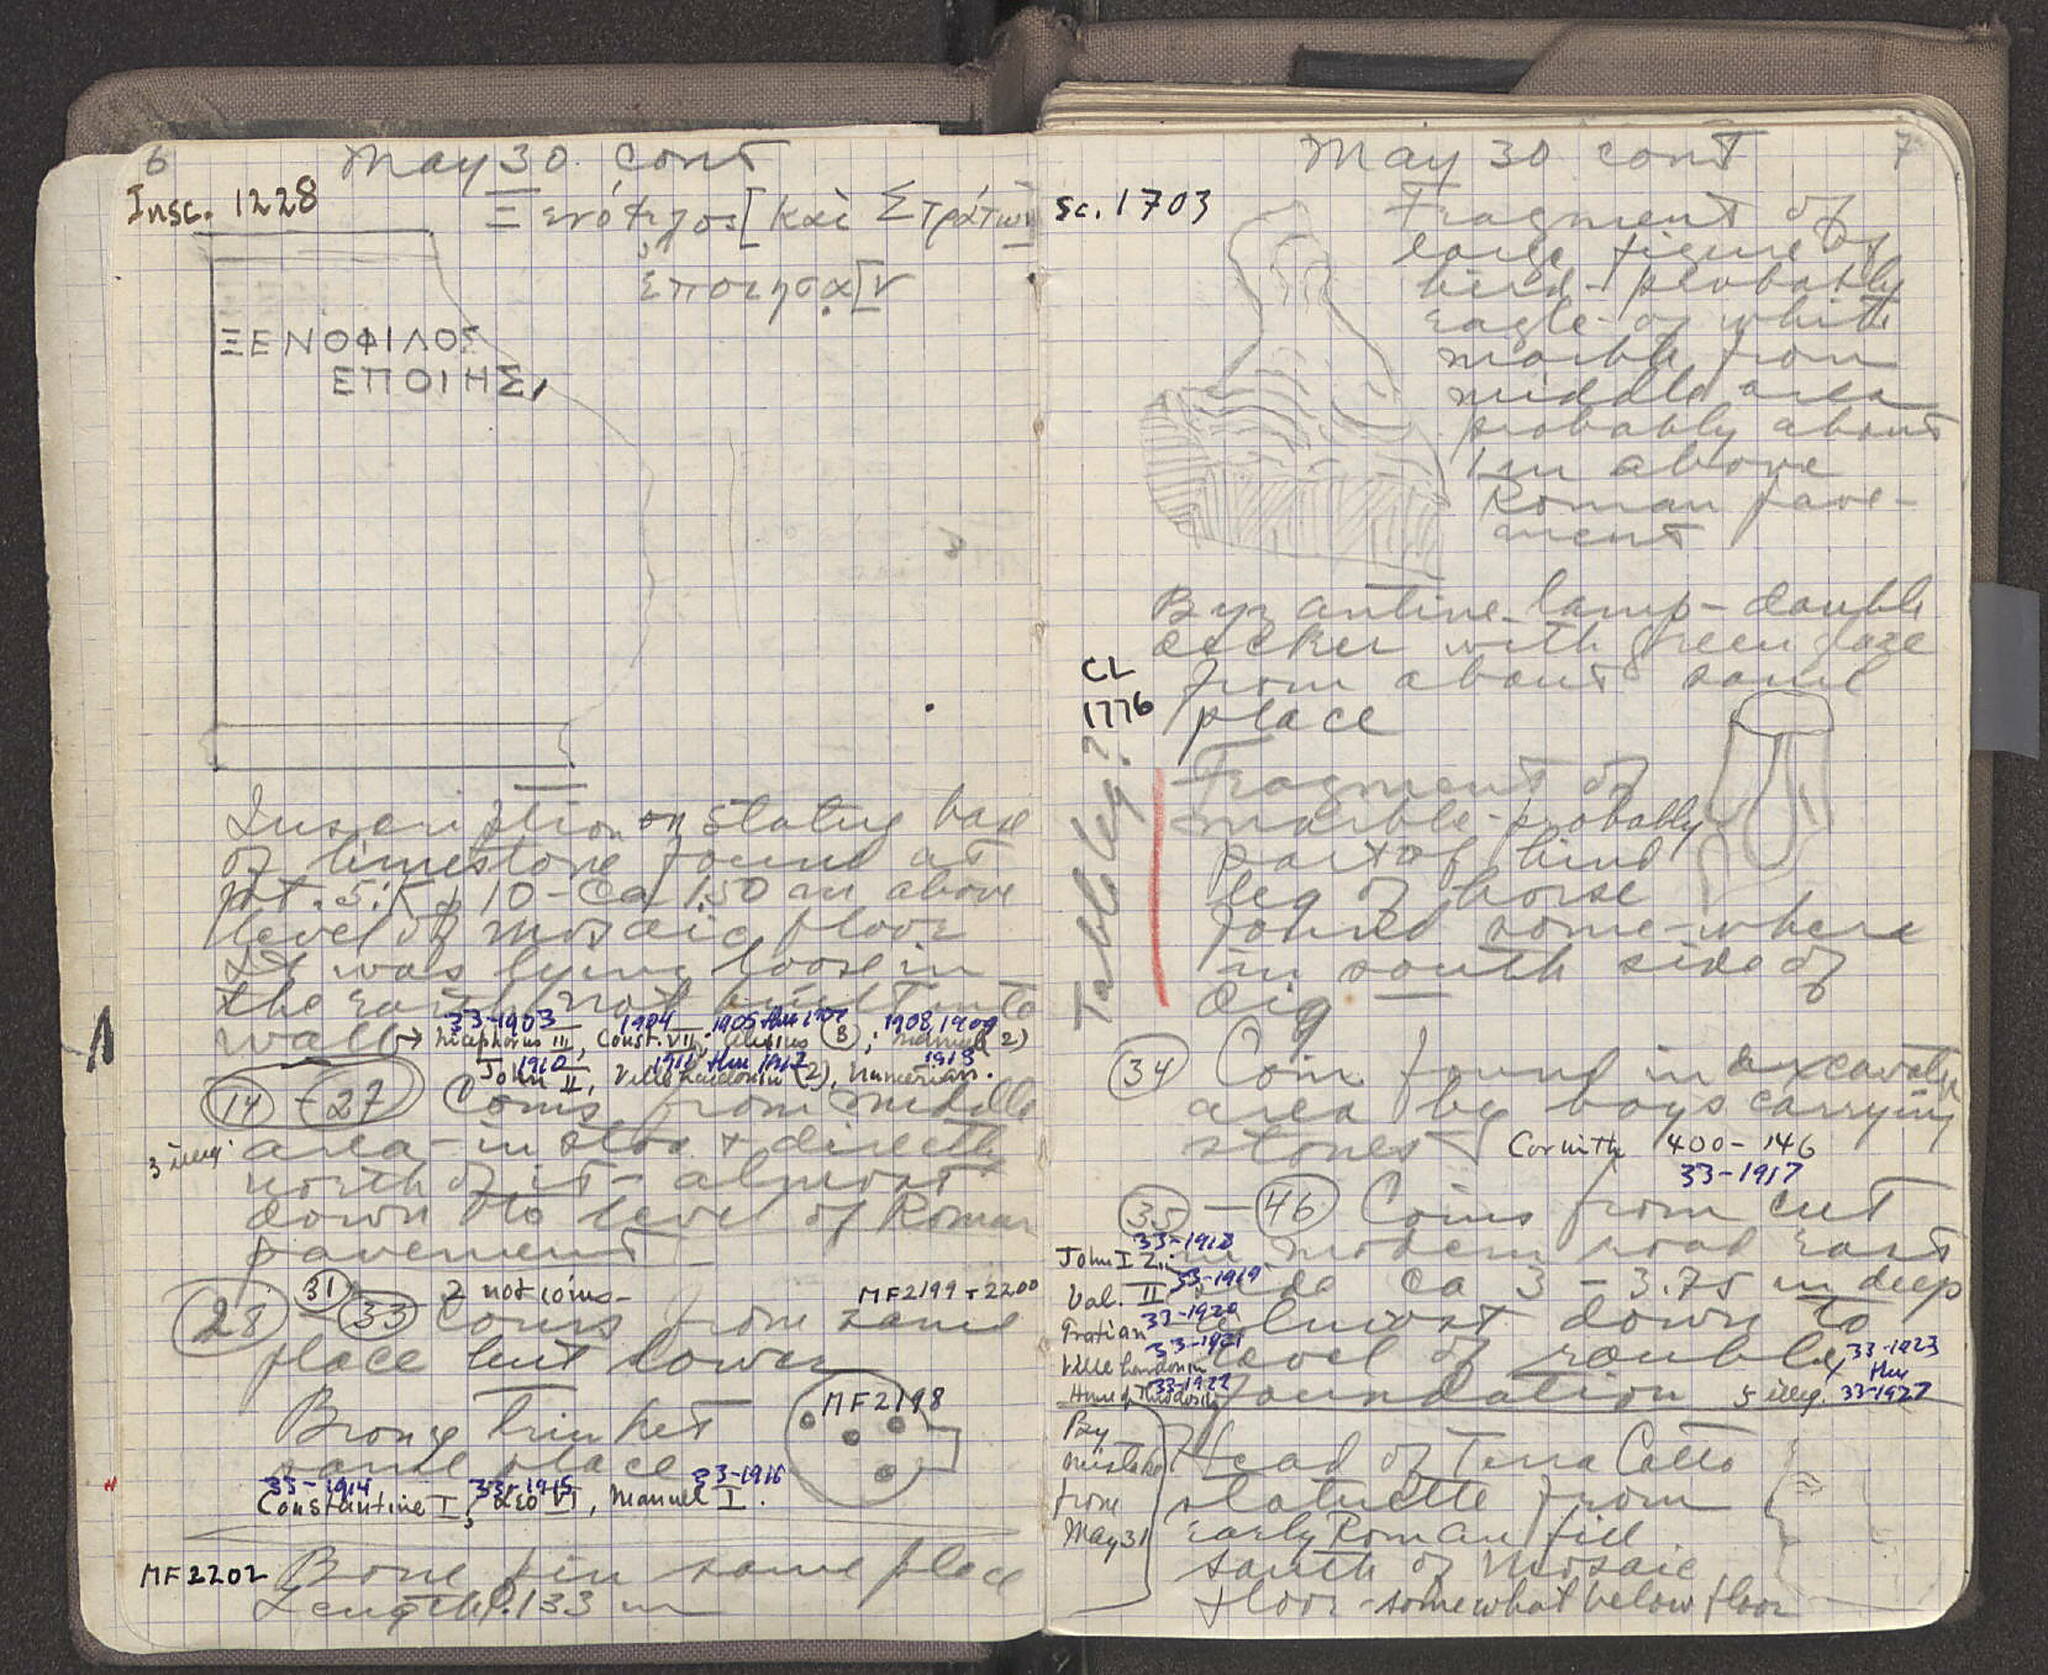 6 May 30 cont
Insc. 1228
Ξενόφιλος[καὶ Στράτων]
ἐποίησα[ν
ΞΕΝΟΦΙΛΟΣ
ΕΠΟΙΗΣ
Inscription on statue base
of limestone found at
pt. 5:K, 10 - ca 1.50 m above
level of mosaic floor
It was lying loose in
the earth not built into
wall
33-1903 1904 1905 thru 1907 1908, 1909
→ Nicephorus III, Const. VII, Alexius (3); Manuel (2)
1910 1911 thru 1912 1913
John II, Villehardouin (2), Numerian.
14 - 27 Coins from middle
3 illeg. area - in stoa + directly
north of it - almost
down to level of Roman
pavement
31 2 not coins - MF2199 + 2200
28 - 33 Coins from same
place but lower
Bronze trinket MF2198
same place
33-1914 33-1915 33-1916
Constantine I, Leo VI, Manuel I.
MF2202 Bone pin same place
Length 0.133 m
May 30 cont 7
Sc. 1703
Fragment of
large figure of
bird - probably
eagle - of white
marble from
middle area
probably about
1 m above
Roman pave-
ment
Byzantine lamp - double
decker with green glaze
CL from about same
1776 place
Table leg?
Fragment of
marble - probably
part of hind
leg of horse
found some-where
in south side of
dig
34 Coin found in excavated
area by boys carrying
stones Corinth 400-146
33-1917
35 - 46 Coins from cut
33-1918
John I Z. in modern road east
33-1919
Val. II side ca 3 - 3.75 m deep
33-1920
Gratian almost down to
33-1921
Villehardouin level of rouble 33-1923
thru
33-1922
Hour of Theodosius foundation 5 illeg. 33-1927
By
mistake
from
May 31
Head of Terra Cotta
statuette from
early Roman fill
south of mosaic
floor - somewhat below floor